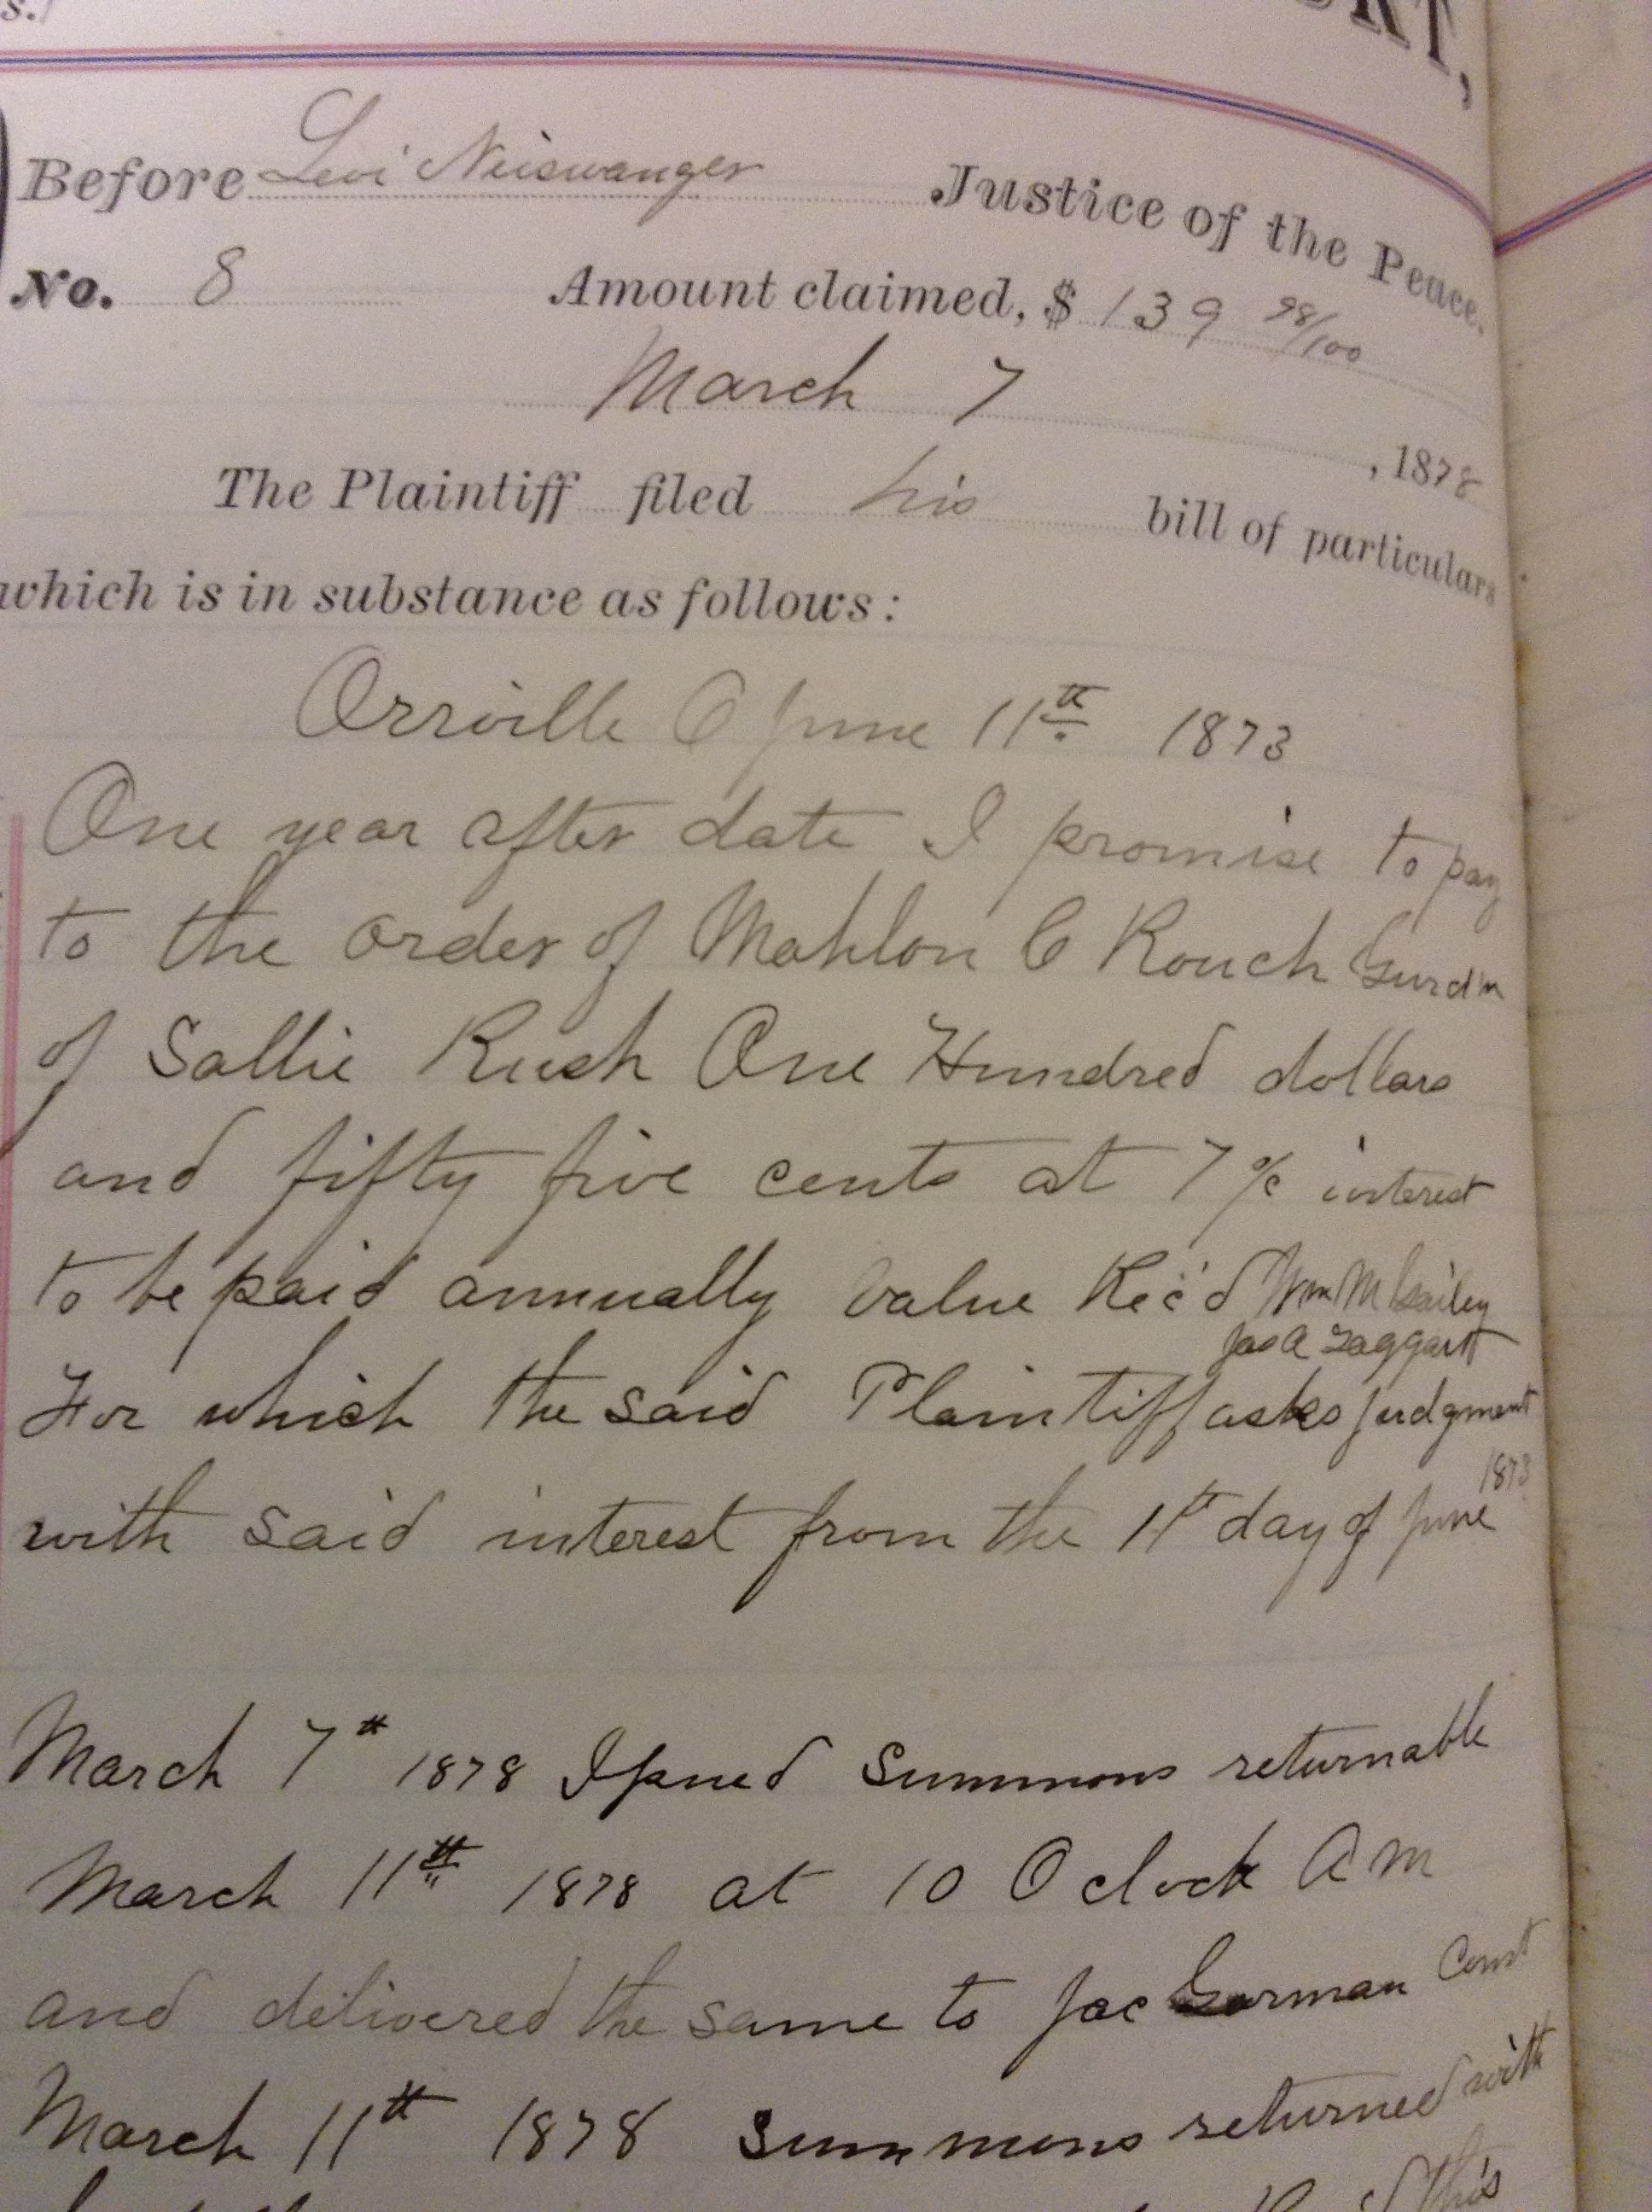 s.)
RT,
Before Levi Neiswanger Justice of the Peace.
No. 8 Amount claimed, $ 139 98/100
March 7, 1878
The Plaintiff filed his bill of particulars
which is in substance as follows:
Orrville O June 11th 1873
One year after date I promise to pay
to the order of Mahlon C Rouch Gurdn
of Sallie Rush One Hundred dollars
and fifty five cents at 7 % interest
to be paid annually Value Rec'd Wm M Gailey
Jas A Taggart
For which the said Plaintiff asks judgment
1873
with said interest from the 11th day of June
March 7th 1878 Issued Summons returnable
March 11th 1878 at 10 O clock A M
and delivered the same to Jac Gorman Const
March 11th 1878 Summons returned with
this